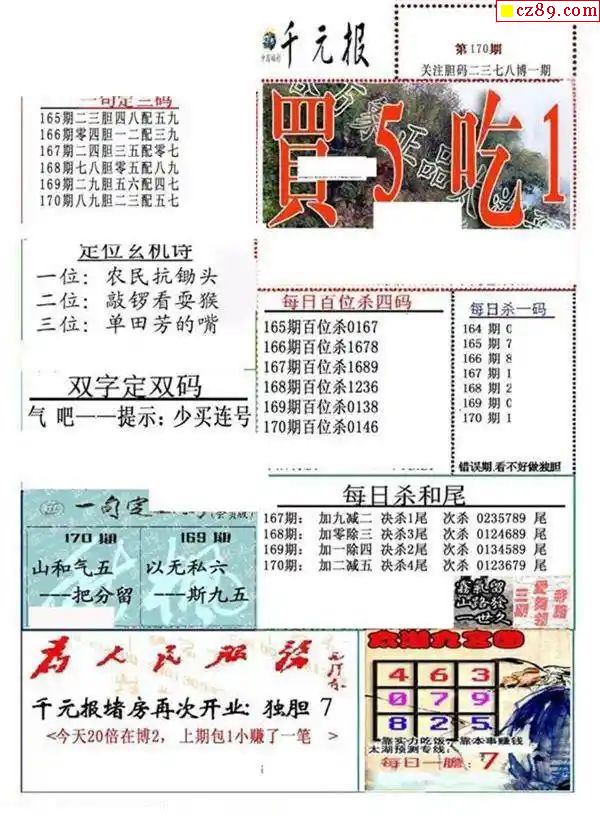 cz89.com
千元报
第170期
关注胆码二三七八博一期
一句定三码
165期二三胆四八配五九
166期零四胆一二配三九
167期二四胆三五配零七
168期七八胆零五配八九
169期二九胆五六配四七
170期八九胆二三配五七
買5吃1
定位玄机诗
一位：农民抗锄头
二位：敲锣看耍猴
三位：单田芳的嘴
每日百位杀四码
165期百位杀0167
166期百位杀1678
167期百位杀1689
168期百位杀1236
169期百位杀0138
170期百位杀0146
每日杀一码
164 期 0
165 期 7
166 期 8
167 期 1
168 期 2
169 期 1
170 期 1
错误期,看不好做独胆
双字定双码
气 吧——提示：少买连号
每日杀和尾
167期：加九减二 决杀1尾 次杀 0235789 尾
168期：加零除三 决杀3尾 次杀 0124689 尾
169期：加一除四 决杀2尾 次杀 0134589 尾
170期：加二减五 决杀4尾 次杀 0123679 尾
一句定
170 期
山和气五
---把分留
169 期
以无私六
---斯九五
为人民服务
千元报堵房再次开业：独胆 7
<今天20倍在博2，上期包1小赚了一笔 >
太湖九宫图
4 6 3
0 7 9
8 2 5
靠实力吃饭，靠本事赚钱
太湖预测专线：
每日一胆：7